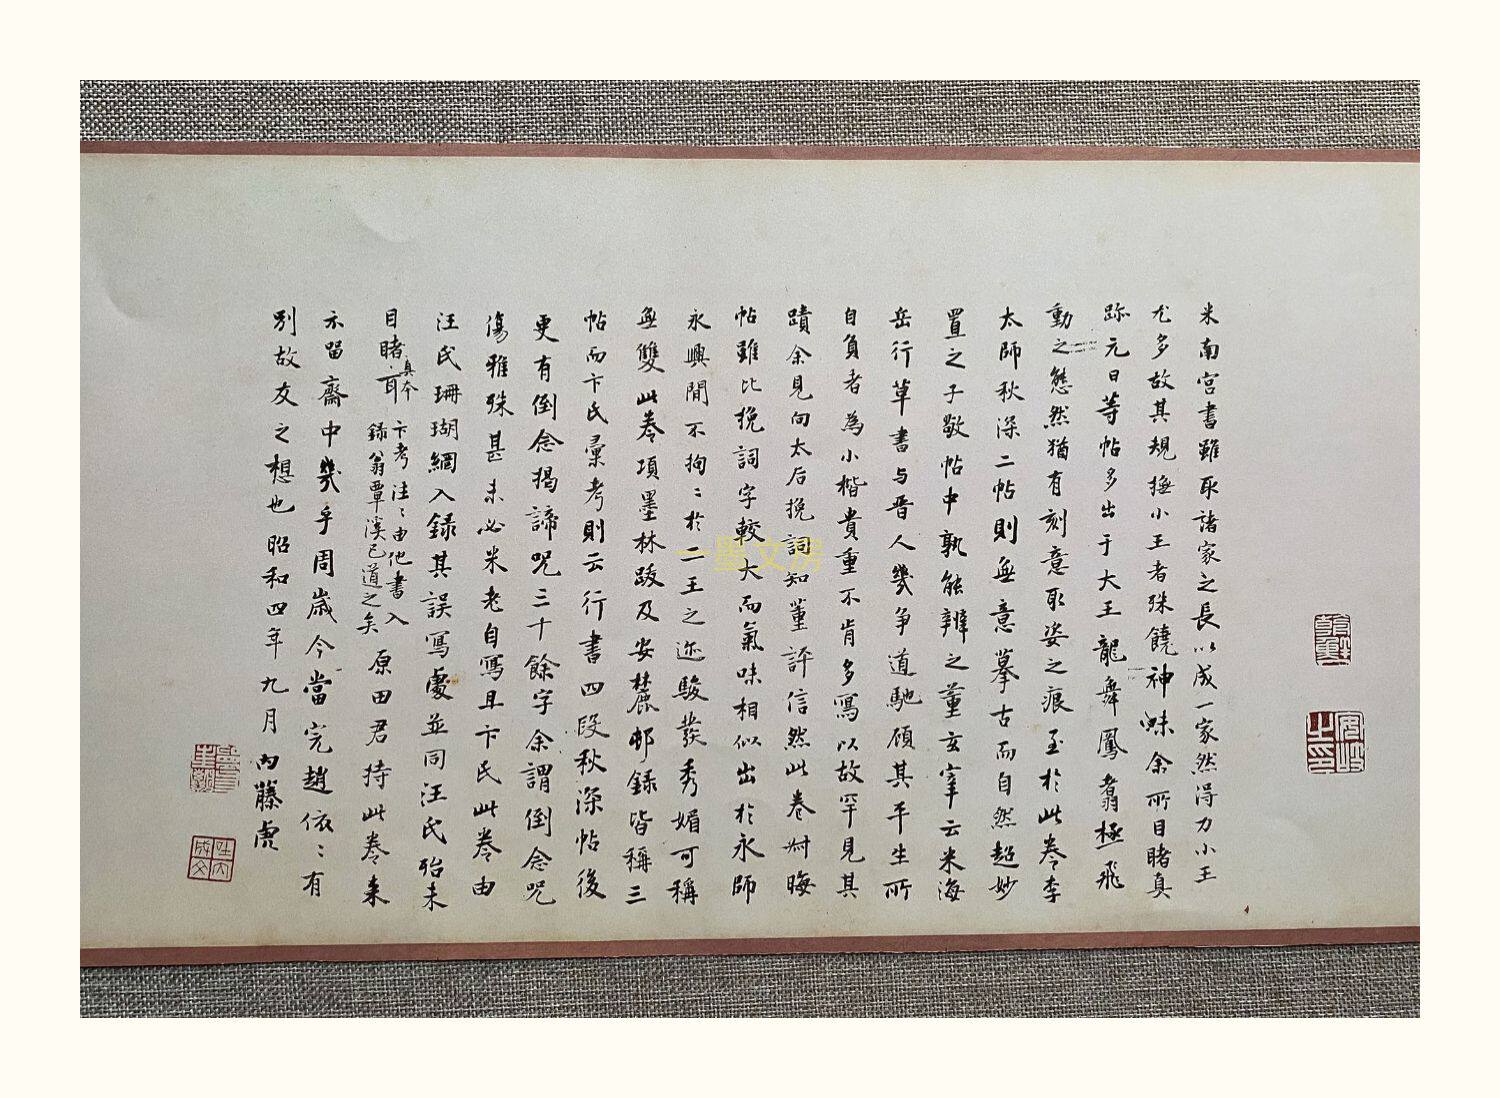 米南宮書雖取諸家之長以成一家然得力小王
尤多故其規撫小王者殊饒神味余所目睹真
跡元日等帖多出于大王龍舞鳳翥極飛
動之態然猶有刻意取姿之痕至於此卷李
太師秋深二帖則無意摹古而自然超妙
置之子敬帖中孰能辨之董玄宰云米海
岳行草書与晋人幾争道馳頎其平生所
自負者為小楷貴重不肯多寫以故罕見其
蹟余見向太后挽詞知董評信然此卷尌晦
帖雖比挽詞字較大而氣味相似出於永師
永興間不拘〻於二王之迹駿發秀媚可稱
無雙此卷項墨林跋及安麓邨録皆稱三
帖而卞氏彙考則云行書四段秋深帖後
更有倒念揭諦咒三十餘字余謂倒念咒
傷雅殊甚未必米老自寫且卞氏此卷由
汪氏珊瑚網入録其誤寫處並同汪氏殆未
目睹真今耳卞考注〻由他書入録翁覃溪已道之矣原田君持此卷来
示留齋中幾乎周歳今當完趙依〻有
別故友之想也昭和四年九月内藤虎
一墨文房